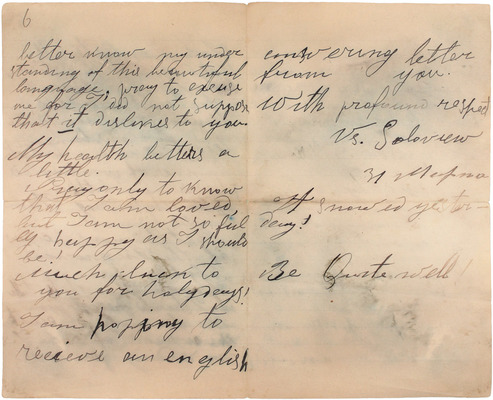 6
better know my under
standing of this beautiful
language, pray to excuse
me for I did not suppose
that it dislikes to you.
My health betters a
little.
I pray only to know
that I am loved,
but I am not so ful
ly happy as I should
be!
Much pleasn to
you for holydays!
I am hopping to
recieve an english
answering letter
from you.
With profound respect
Vs. Soloview
31 Марта
It snowed yester-
day!
Be Quite well!